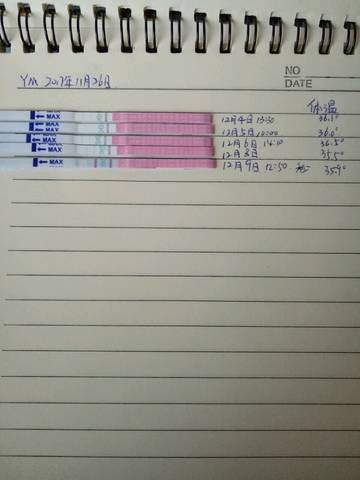 NO
DATE
YM 2017年11月26日
体温
MAX 12月4日 13:30 36.1°
MAX 12月5日 10:00 36.0°
MAX 12月6日 14:10 36.5°
MAX 12月8日 35.5°
MAX 12月9日 12:50 35.9°